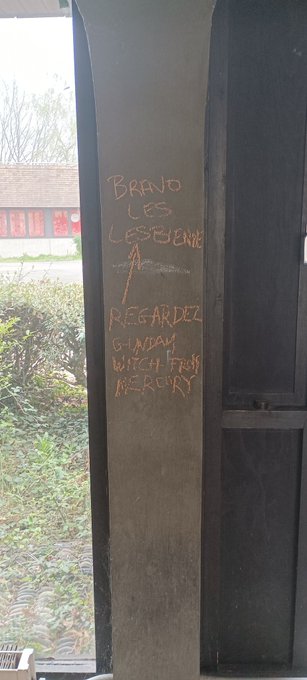 BRAVO
LES
LESBIENNE
REGARDEZ
GUNDAM
WITCH FROM
MERCURY